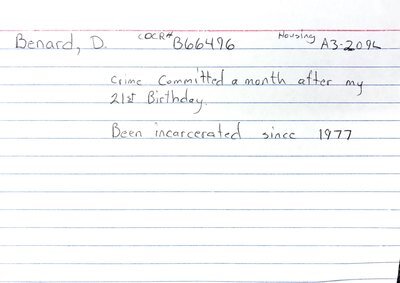 Benard, D. CDCR# B66496 Housing A3-209L
Crime Committed a month after my
21st Birthday.
Been incarcerated since 1977